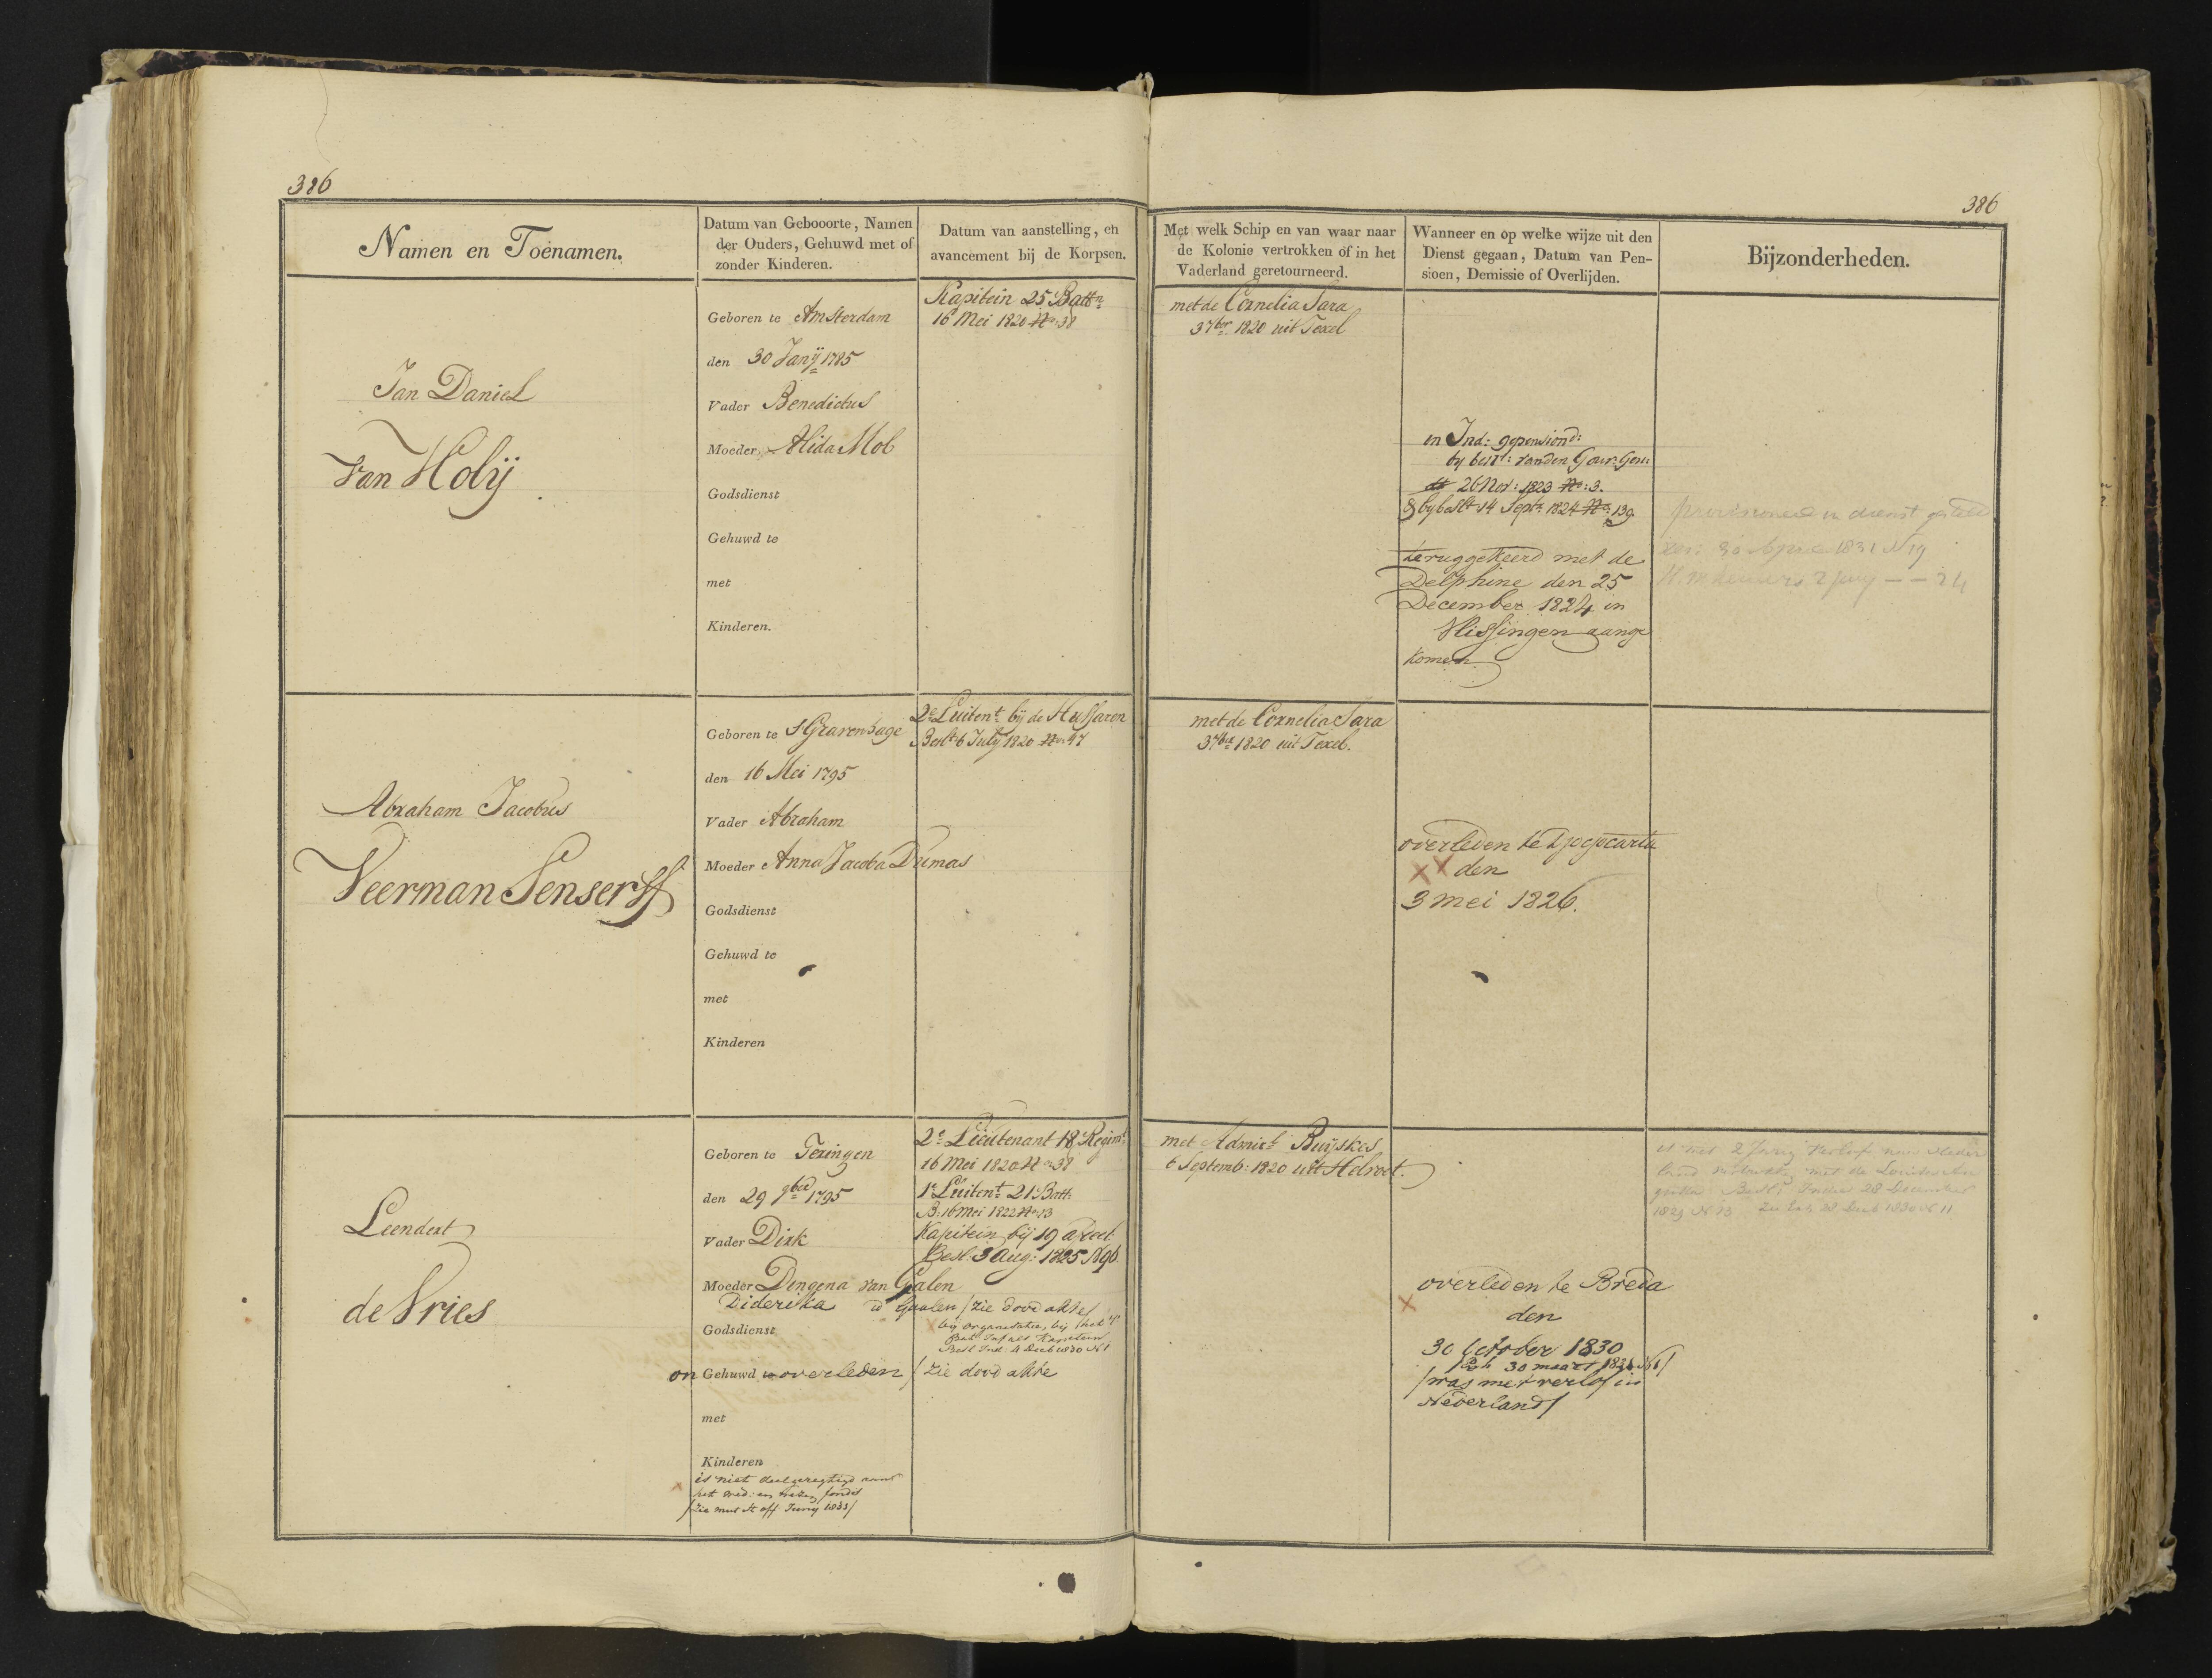 386
386
Namen en Toenamen.
Datum van Gebooorte, Namen
der Ouders, Gehuwd met of
zonder Kinderen.
Datum van aanstelling, en
avancement bij de Korpsen.
Met welk Schip en van waar naar
de Kolonie vertrokken of in het
Vaderland geretourneerd.
Wanneer en op welke wijze uit den
Dienst gegaan, Datum van Pen-
sioen, Demissie of Overlijden.
Bijzonderheden.
Jan Daniel
van Holij
Geboren te Amsterdam
den 30 Janij 1785
Vader Benedictus
Moeder Alida Mol
Godsdienst
Gehuwd te
met
Kinderen.
Kapitein 25e Battn
16 Mei 1820 No 38
met de Cornelia Sara
3 7ber 1820 uit Texel
in Ind: gepensiond:
by beslt: van den Gour: Gen:
dt 26 Nov: 1823 No: 3.
& by beslt 14 Septr 1824 No 139.
teruggekeerd met de
Delphine den 25
December 1824 in
Vlissingen aange
komen
provisioneel in dienst gesteld
30 April 1831 N 19
Abraham Jacobus
Veerman Senserff
Geboren te S'Gravenhage
den 16 Mei 1795
Vader Abraham
Moeder Anna Jacoba Dumas
Godsdienst
Gehuwd te
met
Kinderen
2e Luitent bij de Hussaren
Beslt 6 July 1820 No 47
met de Cornelia Sara
3 7ber 1820 uit Texel.
overleden te Djocjocarta
den
3 mei 1826.
Leendert
de Vries
Geboren te Texingen
den 29 gber 1795
Vader Dirk
Moeder Dingena van Galen
Diderika d Gaalen / zie dood akte /
Godsdienst
on Gehuwd te overleden / zie dood akte
met
Kinderen
is niet deelgeregtigd aan
het wed: en weezen fonds
/ zie
2e Lieutenant 18e Regimt
16 Mei 1820 No 38
1e Luitent 21e Batt:
B: 16 Mei 1822 No 13
Kapitein bij 19 afdeel.
Besl: 3 Aug: 1825 N 96
bij organisatie, bij het 4e
Bat Inf als Kapitein
Besl Ind: 4 Decb 1830 N 1
met Admirl Buijskes
6 Septemb: 1820 uit Helvoet.
overleden te Breda
den
30 October 1830
30 maart 1831 N 6 /
/ was met verlof in
Nederland /
is met 2 jarig verlof naar Neder
land vertrokken met de Louisa Au
gusta Beslt Indie 28 December
1829 N 13